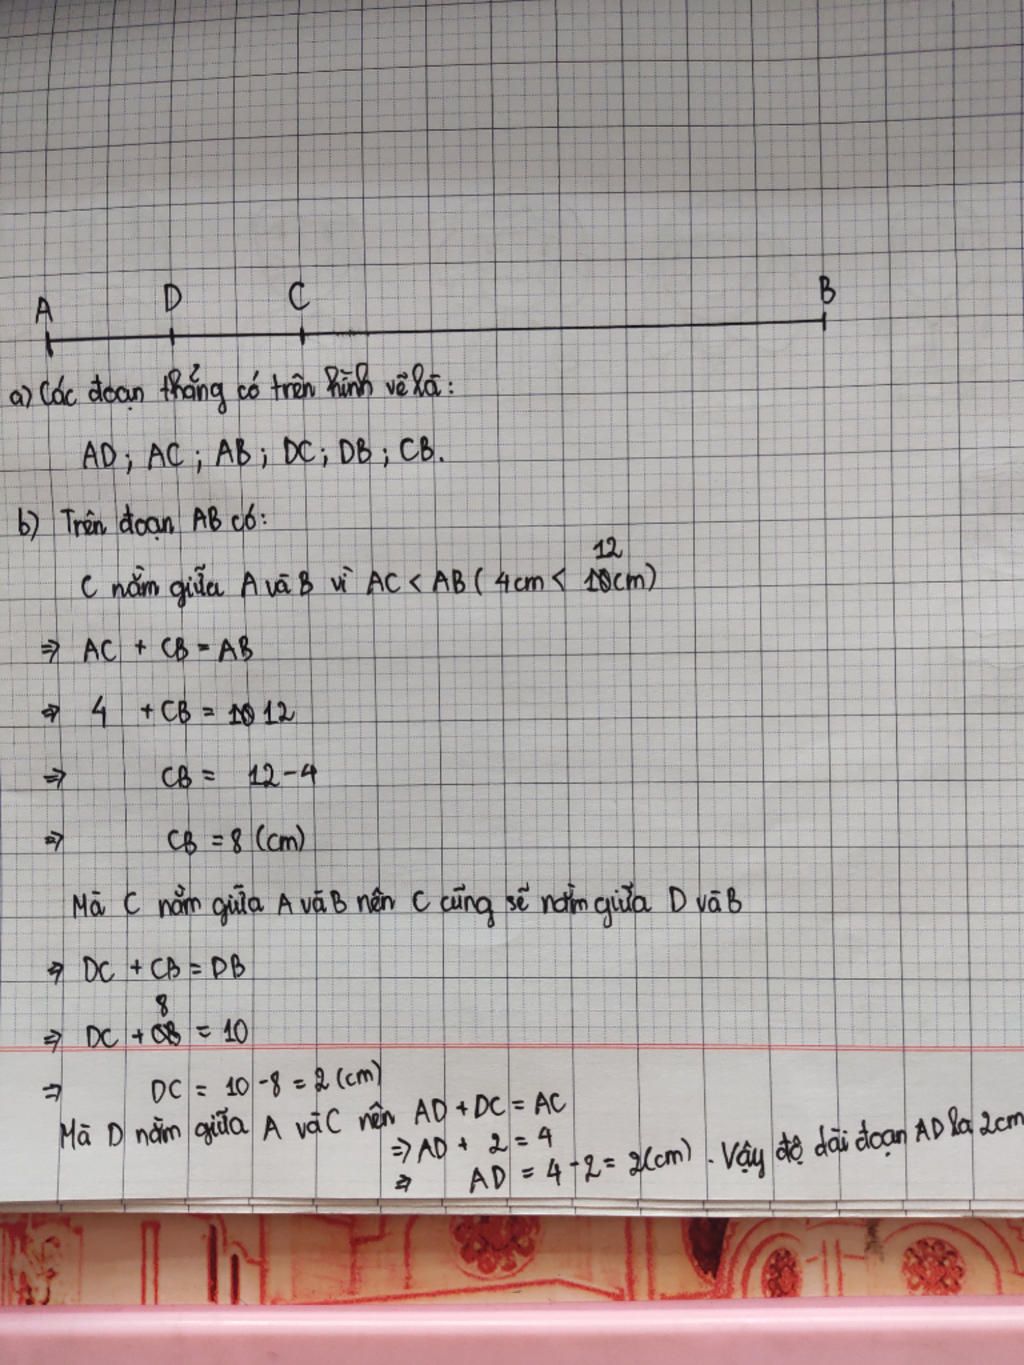 A D C B
a) Các đoạn thẳng có trên hình vẽ là:
AD; AC; AB; DC; DB; CB.
b) Trên đoạn AB có:
12
C nằm giữa A và B vì AC < AB (4cm < 10cm)
⇒ AC + CB = AB
⇒ 4 + CB = 10 12
⇒ CB = 12-4
⇒ CB = 8 (cm)
Mà C nằm giữa A và B nên C cũng sẽ nằm giữa D và B
⇒ DC + CB = DB
8
⇒ DC + CB = 10
⇒ DC = 10-8 = 2 (cm)
Mà D nằm giữa A và C nên AD + DC = AC
⇒ AD + 2 = 4
⇒ AD = 4-2 = 2(cm). Vậy độ dài đoạn AD là 2cm